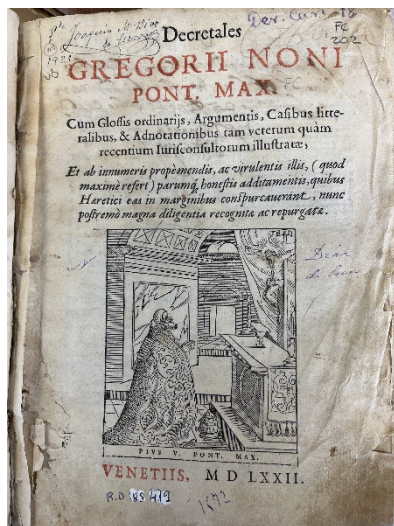 Decretales
GREGORII NONI
PONT. MAX.
Cum Glossis ordinarijs, Argumentis, Casibus litte-
ralibus, & Adnotationibus tam veterum quàm
recentium Iurisconsultorum illustratæ,
Et ab innumeris propèmendis, ac virulentis illis, (quod
maximè refert) parumq́; honestis additamentis, quibus
Heretici eas in marginibus conspurcauerant, nunc
postremò magna diligentia recognita ac repurgatæ.
PIVS V. PONT. MAX.
VENETIIS, M D LXXII.
R.D. 85 419
1572
Joaquin
FC
202